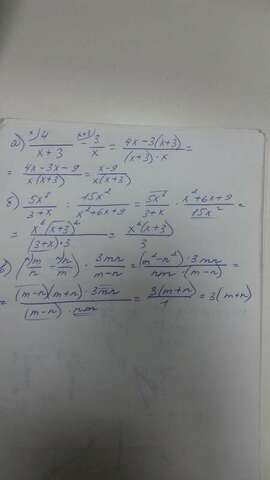 а) x)4/(x+3) - x+3)3/x = (4x-3(x+3))/((x+3)·x) =
= (4x-3x-9)/(x(x+3)) = (x-9)/(x(x+3))
б) 5x²/(3+x) : 15x²/(x²+6x+9) = 5x²/(3+x) · (x²+6x+9)/(15x²) =
= x²(x+3)²/((3+x)·3) = x²(x+3)/3
в) (m/n - n/m) · 3mn/(m-n) = (m²-n²)·3mn/(nm·(m-n)) =
= (m-n)(m+n)·3mn/((m-n)·nm) = 3(m+n)/1 = 3(m+n)